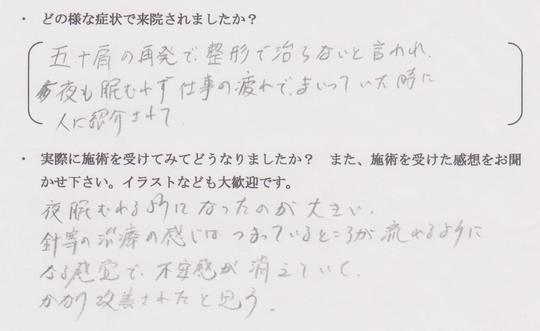 ・ どの様な症状で来院されましたか？
五十肩の再発で整形で治らないと言われ、
夜も眠むれず仕事の疲れで、まいっていた時に
人に紹介されて、
・ 実際に施術を受けてみてどうなりましたか？ また、施術を受けた感想をお聞
かせ下さい。イラストなども大歓迎です。
夜眠むれるようになったのが大きい、
針等の治療の感じは つまっているところが流れるように
なる感覚で、不安感が消えていく、
かなり改善されたと思う。